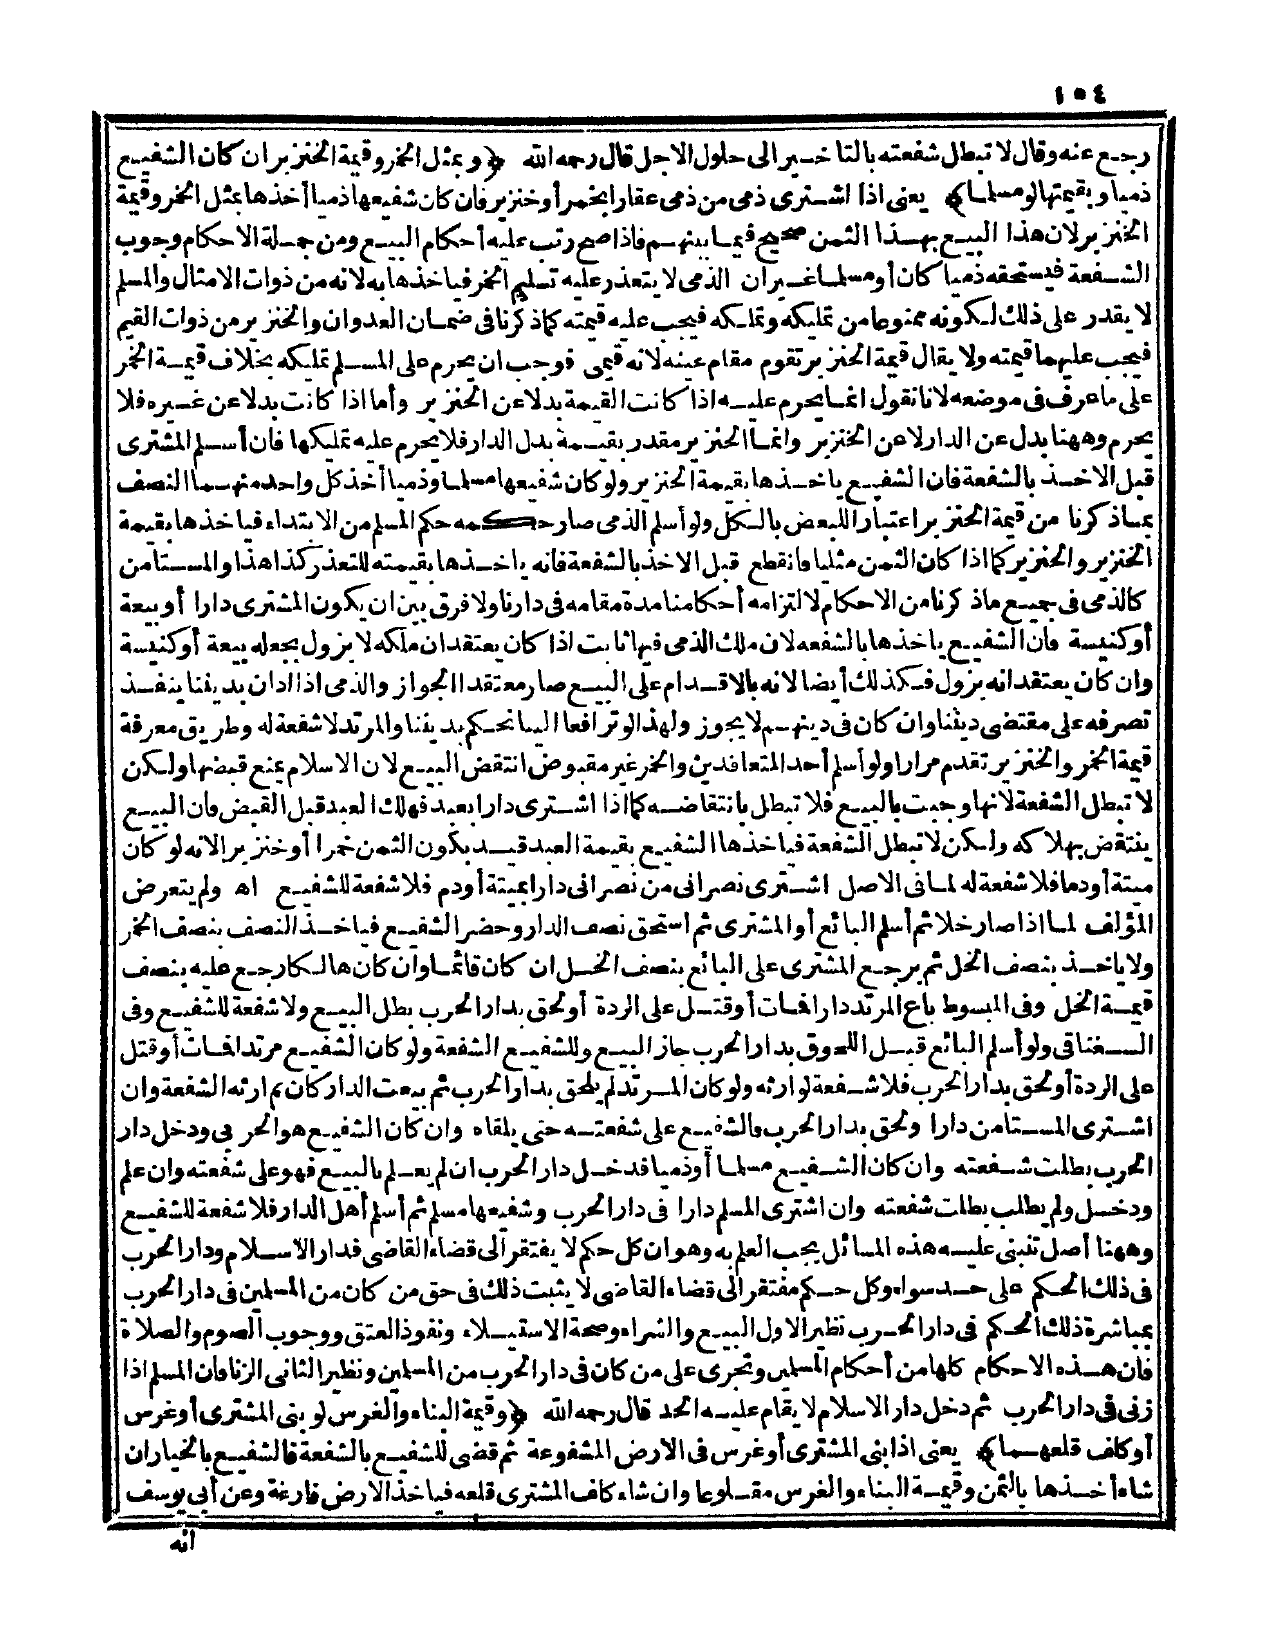 ١٥٤
رجع عنه وقال لا تبطل شفعته بالتاخير الى حلول الاجل قال رحمه الله ﴿وبمثل الخمر وقيمة الخنزير ان كان الشفيع
ذميا وبقيمتها لو مسلما﴾ يعنى اذا اشترى ذمى من ذمى عقارا بخمر أو خنزير فان كان شفيعها ذميا أخذها بمثل الخمر وقيمة
الخنزير لان هذا البيع بهذا الثمن صحيح فيما بينهم فاذا صح رتب عليه أحكام البيع ومن جملة الاحكام وجوب
الشفعة فيستحقه ذميا كان أو مسلما غير ان الذمى لا يتعذر عليه تسليم الخمر فياخذها به لانه من ذوات الامثال والمسلم
لا يقدر على ذلك لكونه ممنوعا من تمليكه وتملكه فيجب عليه قيمته كما ذكرنا فى ضمان العدوان والخنزير من ذوات القيم
فيجب عليهما قيمته ولا يقال قيمة الخنزير تقوم مقام عينه لانه قيمى فوجب ان يحرم على المسلم تمليكه بخلاف قيمة الخمر
على ما عرف فى موضعه لانا نقول انما يحرم عليه اذا كانت القيمة بدلا عن الخنزير وأما اذا كانت بدلا عن غيره فلا
يحرم وههنا بدل عن الدار لا عن الخنزير وانما الخنزير مقدر بقيمة بدل الدار فلا يحرم عليه تمليكها فان أسلم المشترى
قبل الاخذ بالشفعة فان الشفيع ياخذها بقيمة الخنزير ولو كان شفيعها مسلما وذميا أخذ كل واحد منهما النصف
بما ذكرنا من قيمة الخنزير اعتبارا للبعض بالكل ولو أسلم الذمى صار حكمه حكم المسلم من الابتداء فياخذها بقيمة
الخنزير والخنزير كما اذا كان الثمن مثليا فانقطع قبل الاخذ بالشفعة فانه ياخذها بقيمته للتعذر كذا هذا والمستأمن
كالذمى فى جميع ما ذكرنا من الاحكام لالتزامه أحكامنا مدة مقامه فى دارنا ولا فرق بين ان يكون المشترى دارا أو بيعة
أو كنيسة فان الشفيع ياخذها بالشفعة لان ملك الذمى فيها ثابت اذا كان يعتقد ان ملكه لا يزول بجعله بيعة أو كنيسة
وان كان يعتقد انه يزول فكذلك أيضا لانه بالاقدام على البيع صار معتقدا الجواز والذمى اذا ادان بديننا ينفذ
تصرفه على مقتضى ديننا وان كان فى دينهم لا يجوز ولهذا لو ترافعا الينا نحكم بديننا والمرتد لا شفعة له وطريق معرفة
قيمة الخمر والخنزير تقدم مرارا ولو أسلم أحد المتعاقدين والخمر غير مقبوض انتقض البيع لان الاسلام يمنع قبضها ولكن
لا تبطل الشفعة لانها وجبت بالبيع فلا تبطل بانتقاضه كما اذا اشترى دارا بعبد فهلك العبد قبل القبض فان البيع
ينتقض بهلاكه ولكن لا تبطل الشفعة فياخذها الشفيع بقيمة العبد قيد بكون الثمن خمرا أو خنزيرا لانه لو كان
ميتة أو دما فلا شفعة له لما فى الاصل اشترى نصرانى من نصرانى دارا بميتة أو دم فلا شفعة للشفيع اه ولم يتعرض
المؤلف لما اذا صار خلا ثم أسلم البائع أو المشترى ثم استحق نصف الدار وحضر الشفيع فياخذ النصف بنصف الخمر
ولا ياخذ بنصف الخل ثم يرجع المشترى على البائع بنصف الخل ان كان قائما وان كان هالكا رجع عليه بنصف
قيمة الخل وفى المبسوط باع المرتد دارا فمات أو قتل على الردة أو لحق بدار الحرب بطل البيع ولا شفعة للشفيع وفى
السغناقى ولو أسلم البائع قبل اللحوق بدار الحرب جاز البيع وللشفيع الشفعة ولو كان الشفيع مرتدا فمات أو قتل
على الردة أو لحق بدار الحرب فلا شفعة لوارثه ولو كان المرتد لم يلحق بدار الحرب ثم بيعت الدار كان لوارثه الشفعة وان
اشترى المستامن دارا ولحق بدار الحرب فالشفيع على شفعته حتى يلقاه وان كان الشفيع هو الحربى ودخل دار
الحرب بطلت شفعته وان كان الشفيع مسلما أو ذميا فدخل دار الحرب ان لم يعلم بالبيع فهو على شفعته وان علم
ودخل ولم يطلب بطلت شفعته وان اشترى المسلم دارا فى دار الحرب وشفيعها مسلم ثم أسلم أهل الدار فلا شفعة للشفيع
وههنا أصل تنبنى عليه هذه المسائل يجب العلم به وهو ان كل حكم لا يفتقر الى قضاء القاضى فدار الاسلام ودار الحرب
فى ذلك الحكم على حد سواء وكل حكم مفتقر الى قضاء القاضى لا يثبت ذلك فى حق من كان من المسلمين فى دار الحرب
بمباشرة ذلك الحكم فى دار الحرب نظير الاول البيع والشراء وصحة الاستيلاء ونفوذ العتق ووجوب الصوم والصلاة
فان هذه الاحكام كلها من أحكام المسلمين وتجرى على من كان فى دار الحرب من المسلمين ونظير الثانى الزنا فان المسلم اذا
زنى فى دار الحرب ثم دخل دار الاسلام لا يقام عليه الحد قال رحمه الله ﴿وقيمة البناء والغرس لو بنى المشترى أو غرس
أو كلف قلعهما﴾ يعنى اذا بنى المشترى أو غرس فى الارض المشفوعة ثم قضى للشفيع بالشفعة فالشفيع بالخيار ان
شاء أخذها بالثمن وقيمة البناء والغرس مقلوعا وان شاء كلف المشترى قلعه فياخذ الارض فارغة وعن أبى يوسف
انه